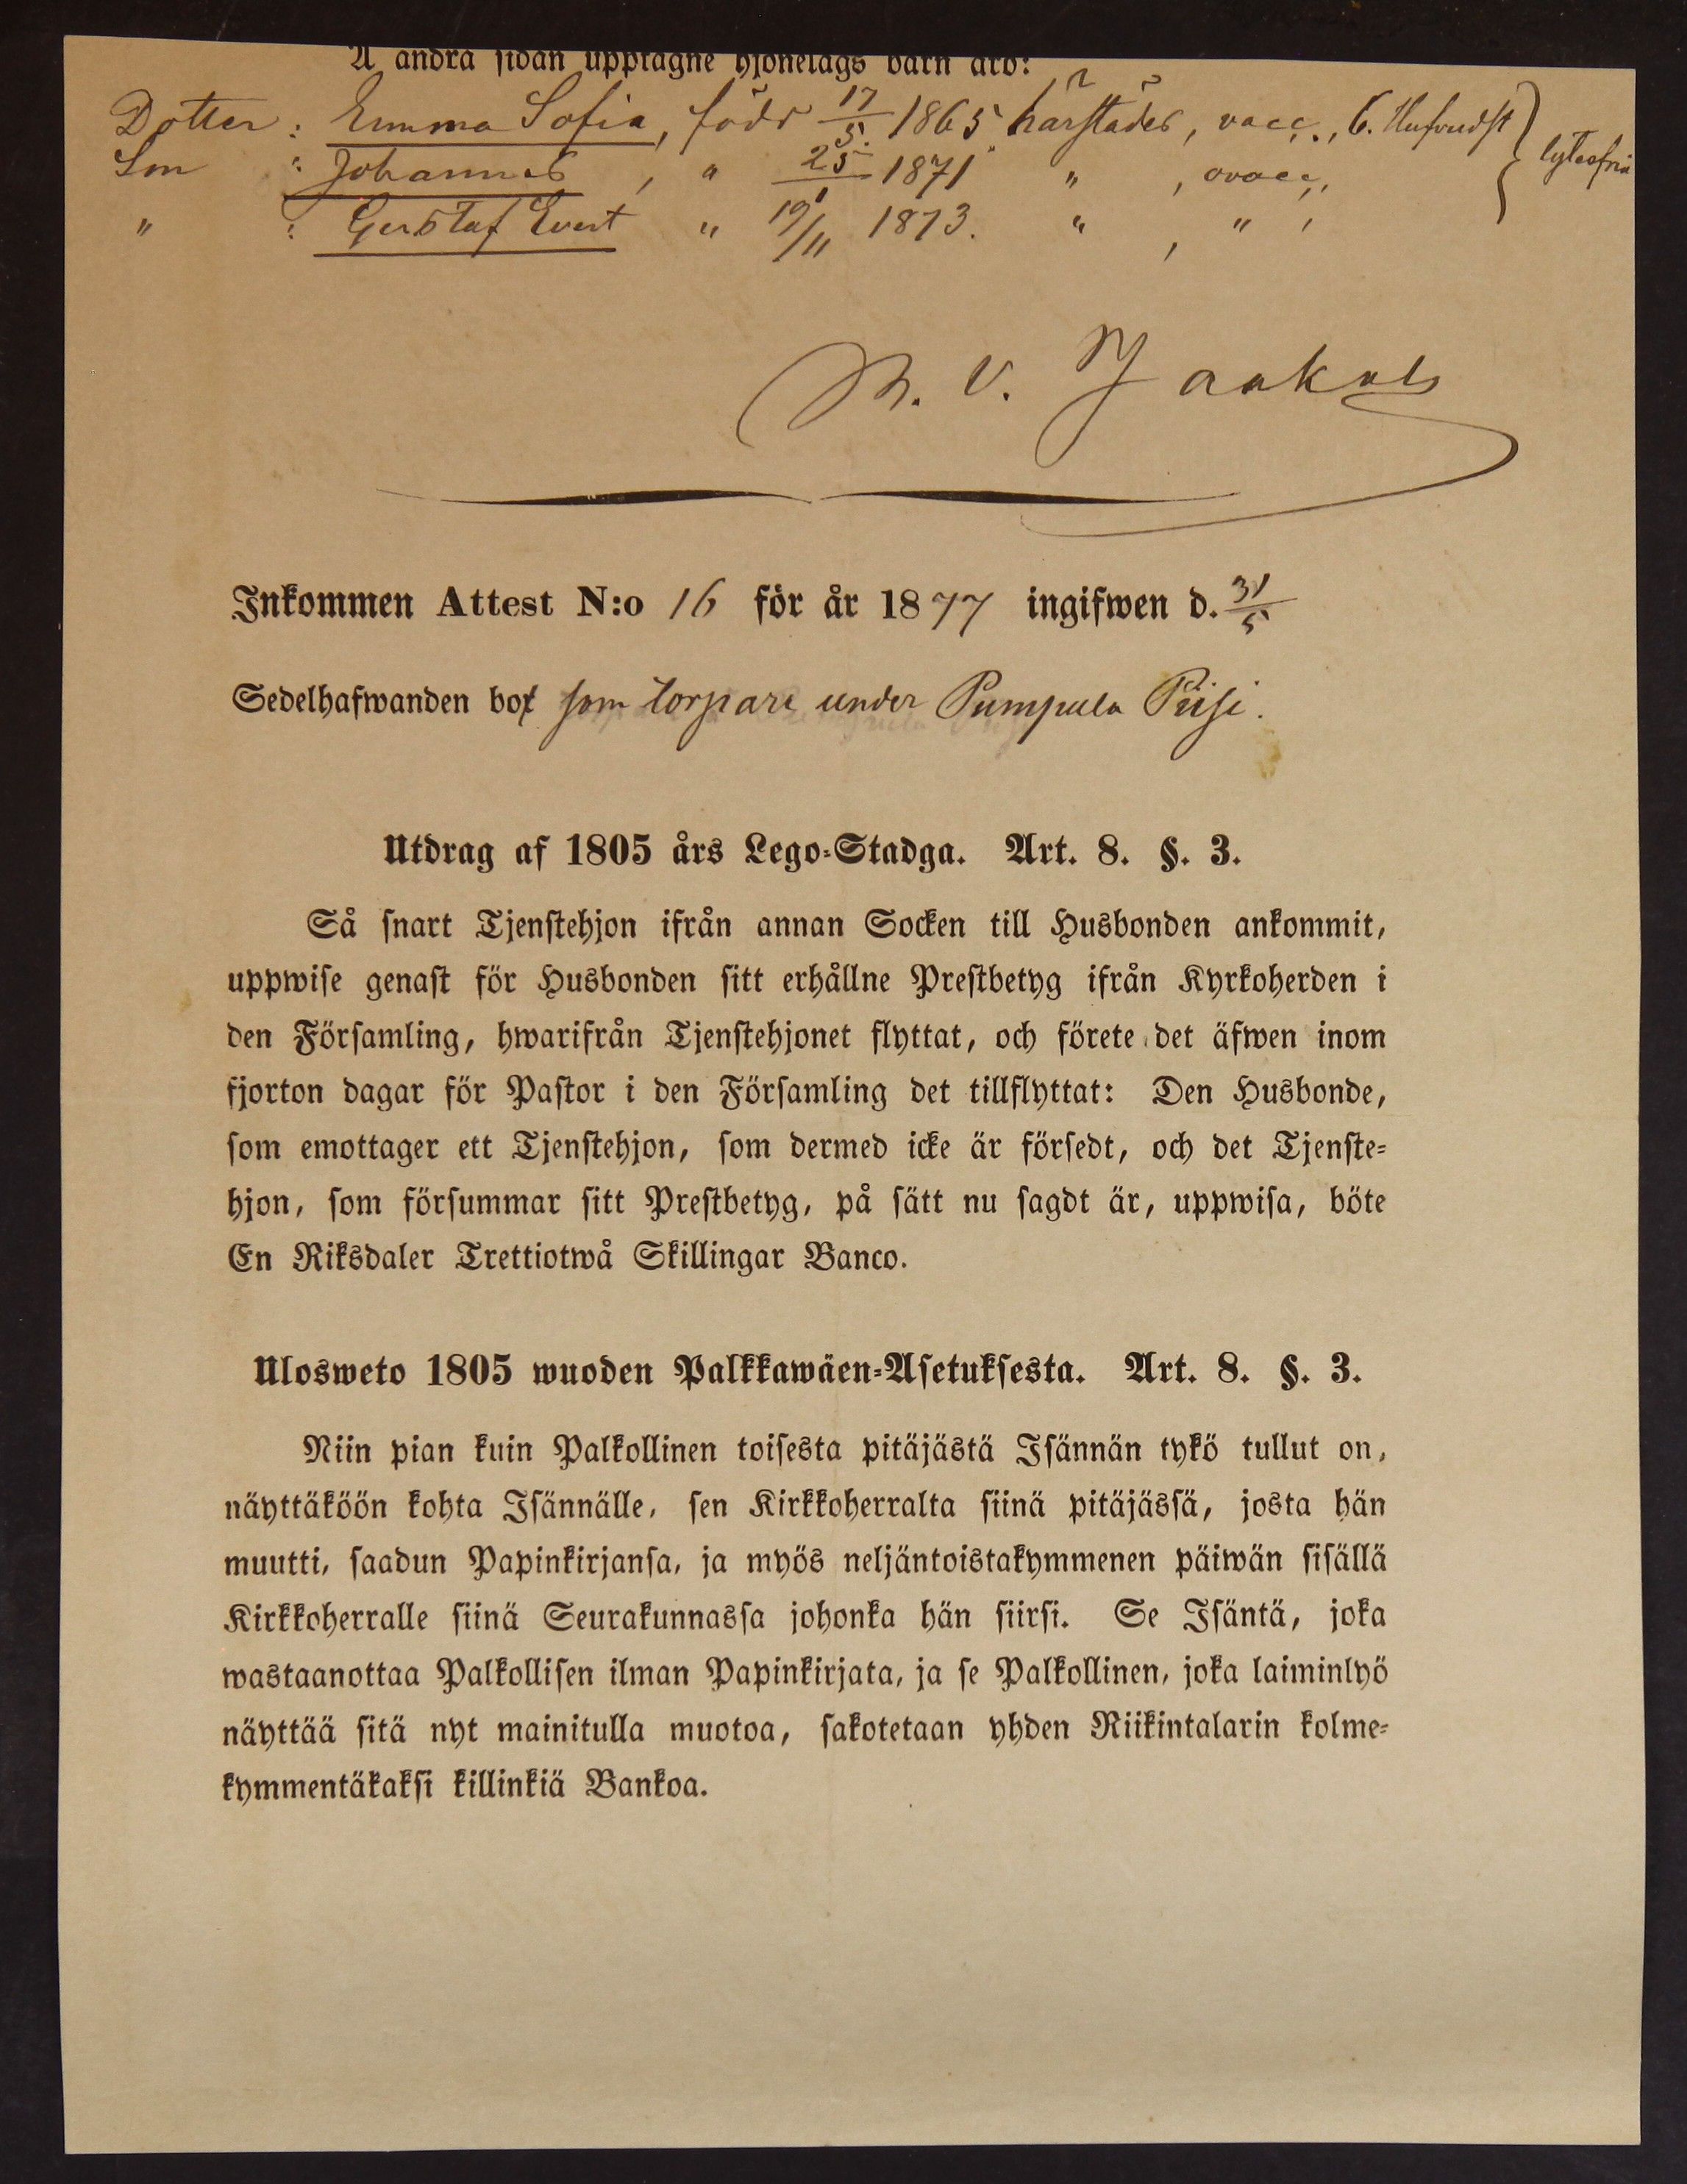 Å andra sidan upptagne hjonelags barn äro:
Dotter : Emma Sofia, född 17/5 1865 härstädes, vacc., C. Hufvudst } lytesfria
Son : Johannes, " 25/1 1871 " , ovacc,
" : Gustaf Evert " 19/11 1873. " , " ,
V. Jaakola
Inkommen Attest N:o 16 för år 1877 ingifwen d. 31/5
Sedelhafwanden bor som torpare under Pumpula Piisi.
Utdrag af 1805 års Lego-Stadga. Art. 8. §. 3.
Så snart Tjenstehjon ifrån annan Socken till Husbonden ankommit,
uppwise genast för Husbonden sitt erhållne Prestbetyg ifrån Kyrkoherden i
den Församling, hwarifrån Tjenstehjonet flyttat, och förete det äfwen inom
fjorton dagar för Pastor i den Församling det tillflyttat: Den Husbonde,
som emottager ett Tjenstehjon, som dermed icke är försedt, och det Tjenste-
hjon, som försummar sitt Prestbetyg, på sätt nu sagdt är, uppwisa, böte
En Riksdaler Trettiotwå Skillingar Banco.
Ulosweto 1805 wuoden Palkkawäen-Asetuksesta. Art. 8. §. 3.
Niin pian kuin Palkollinen toisesta pitäjästä Isännän tykö tullut on,
näyttäköön kohta Isännälle, sen Kirkkoherralta siinä pitäjässä, josta hän
muutti, saadun Papinkirjansa, ja myös neljäntoistakymmenen päiwän sisällä
Kirkkoherralle siinä Seurakunnassa johonka hän siirsi. Se Isäntä, joka
wastaanottaa Palkollisen ilman Papinkirjata, ja se Palkollinen, joka laiminlyö
näyttää sitä nyt mainitulla muotoa, sakotetaan yhden Riikintalarin kolme-
kymmentäkaksi killinkiä Bankoa.